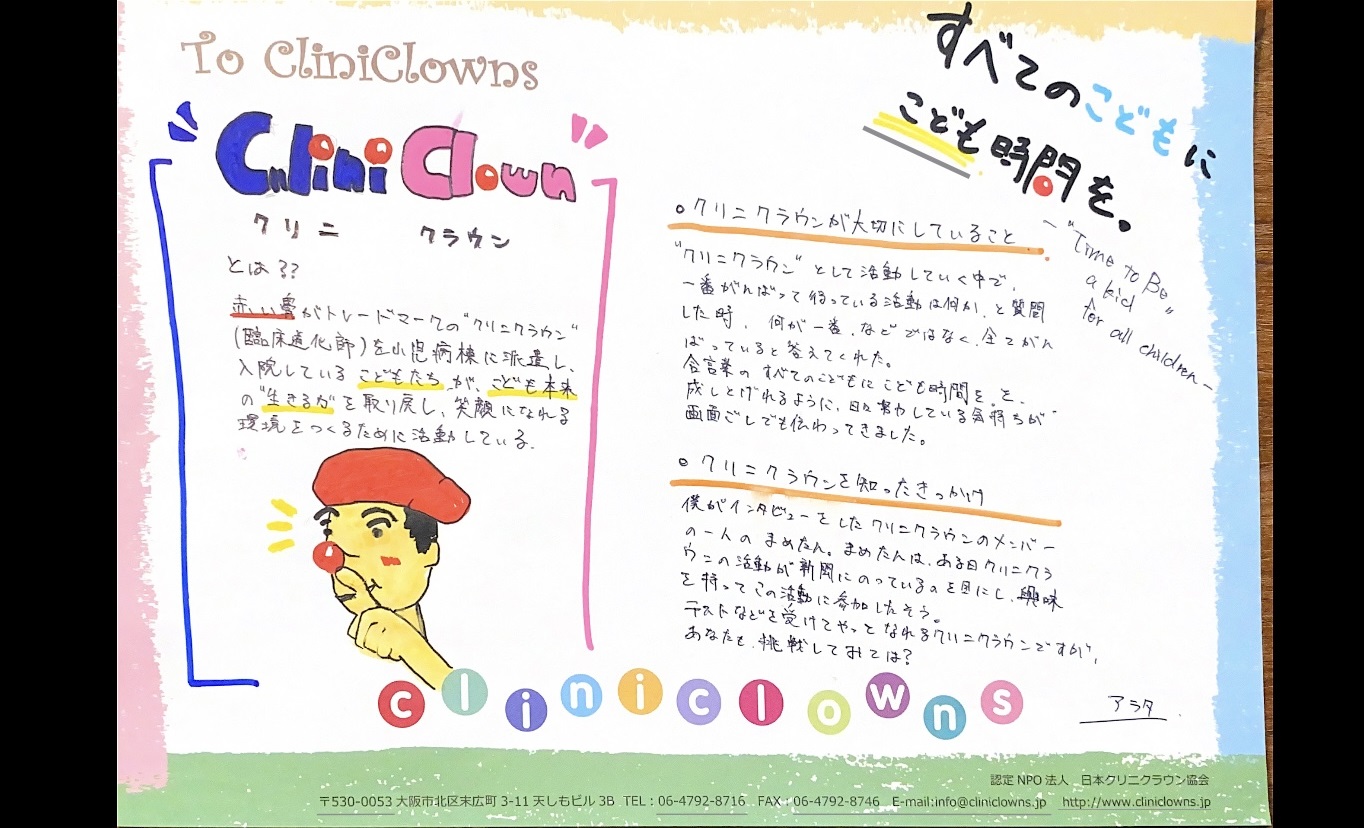 To CliniClowns
CliniClown
クリニ クラウン
とは??
赤い鼻がトレードマークの"クリニクラウン"
(臨床道化師)を小児病棟に派遣し、
入院しているこどもたちが、こども本来
の"生きる力"を取り戻し、笑顔になれる
環境をつくるために活動している.
すべてのこどもに
こども時間を。
〜"Time to Be
a kid"
for all children〜
○クリニクラウンが大切にしていること
"クリニクラウン"として活動していく中で、
一番がんばって行っている活動は何か、と質問
した時、何が一番、などではなく、全てがん
ばっていると答えてくれた。
合言葉のすべてのこどもにこども時間を。を、
成しとげれるように、日々努力している気持ちが
画面ごしでも伝わってきました。
○クリニクラウンを知ったきっかけ
僕がインタビューをしたクリニクラウンのメンバー
の一人のまめたん。まめたんは、ある日クリニクラ
ウンの活動が新聞にのっているのを目にし、興味
を持ってこの活動に参加したそう。
テストなどを受けてやっとなれるクリニクラウンですが、
あなたも、挑戦してみては?
アラタ
cliniclowns
認定NPO法人 日本クリニクラウン協会
〒530-0053 大阪市北区末広町 3-11 天しもビル 3B TEL:06-4792-8716 FAX:06-4792-8746 E-mail:info@cliniclowns.jp http://www.cliniclowns.jp